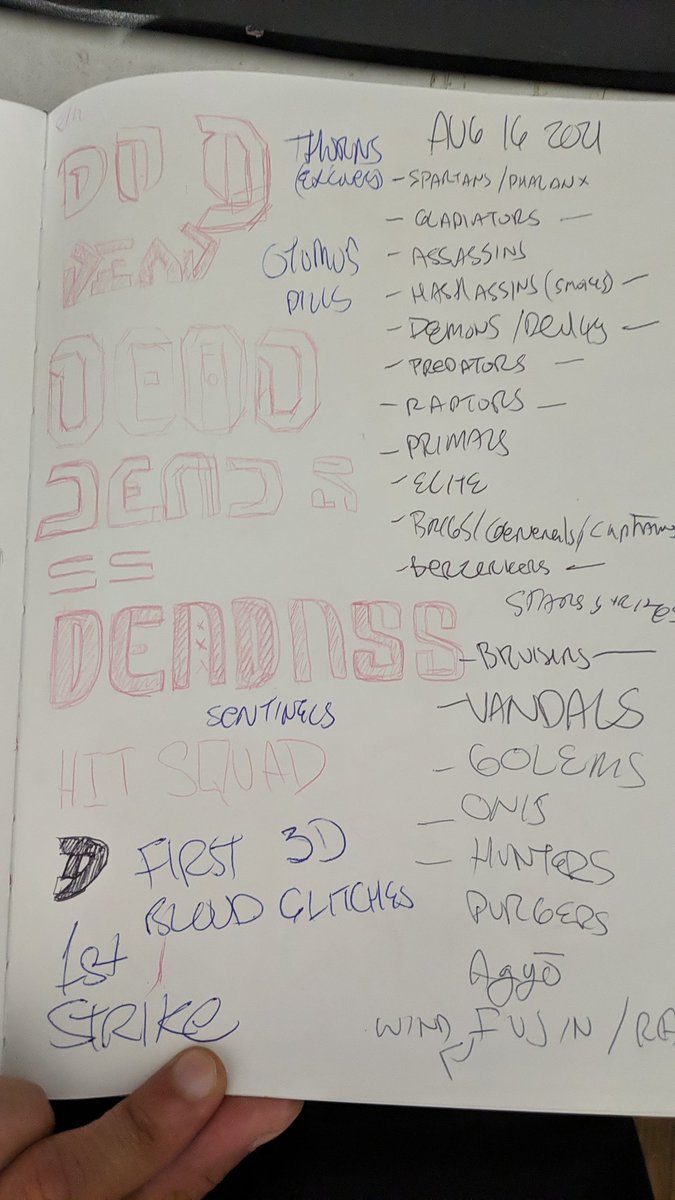 AUG 16 2021
DD D
THORNS
- SPARTANS / PHALANX
- GLADIATORS -
DEAD
- ASSASSINS
PILLS
- HASHASSINS (SMOKES) -
- DEMONS /
- PREDATORS -
DEAD
- RAPTORS -
- PRIMALS
- ELITE
DEAD
- BRIGS / Generals / CAPTAINS
- BERZERKERS -
SS
DEADASS
- BRUISERS -
SENTINELS
- VANDALS
HIT SQUAD
- GOLEMS
- ONIS
D FIRST 3D
- HUNTERS
BLOOD GLITCHES
PURGERS
1st
STRIKE
Agyō
WIND FUJIN / RA